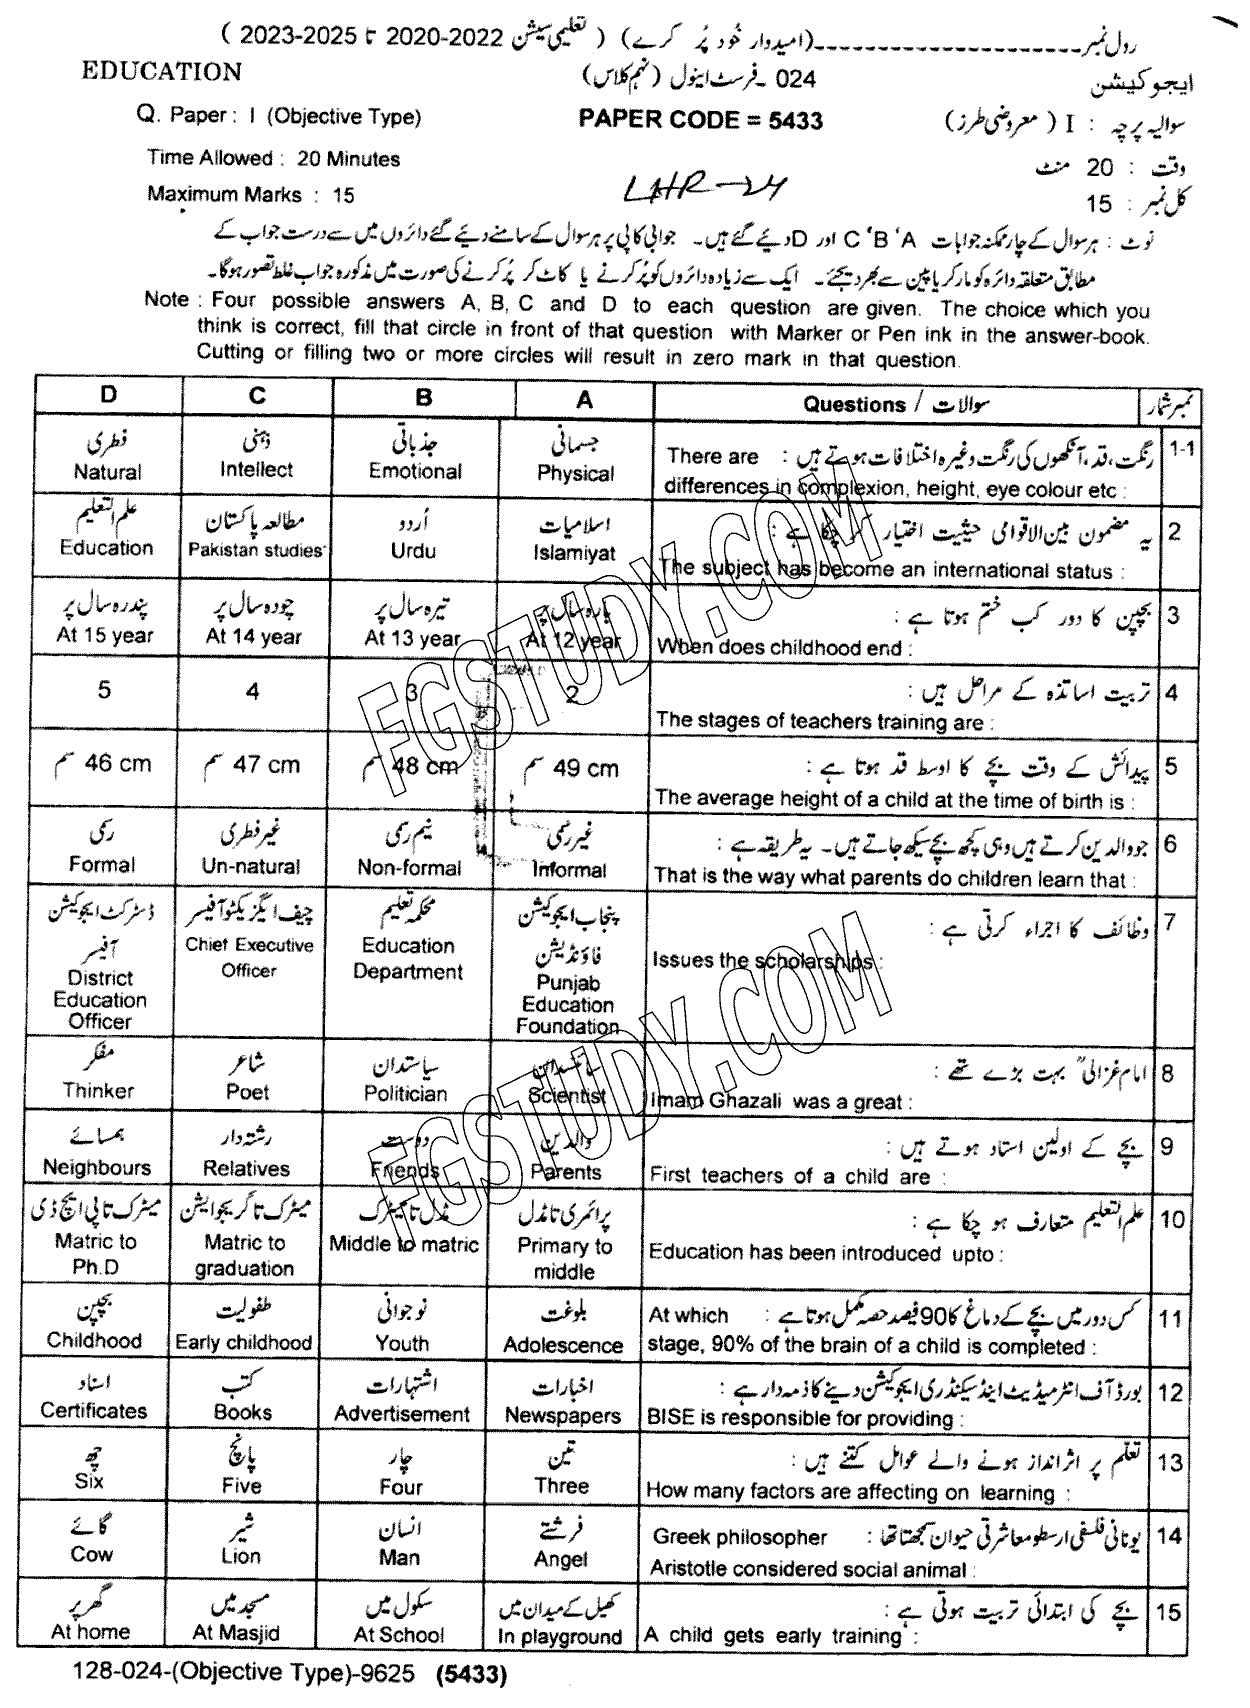 رول نمبر ـــــــــــــــــــــــ (امیدوار خود پُر کرے) ( تعلیمی سیشن 2022-2020 تا 2025-2023 )
EDUCATION 024 ـ فرسٹ اینول (نہم کلاس) ایجوکیشن
Q. Paper : I (Objective Type) PAPER CODE = 5433 سوالیہ پرچہ : I ( معروضی طرز )
Time Allowed : 20 Minutes وقت : 20 منٹ
Maximum Marks : 15 LHR-24 کل نمبر : 15
نوٹ : ہر سوال کے چار ممکنہ جوابات A ' B ' C اور D دیئے گئے ہیں۔ جوابی کاپی پر ہر سوال کے سامنے دیئے گئے دائروں میں سے درست جواب کے
مطابق متعلقہ دائرہ کو مارکر یا پین سے بھر دیجئے۔ ایک سے زیادہ دائروں کو پُر کرنے یا کاٹ کر پُر کرنے کی صورت میں مذکورہ جواب غلط تصور ہوگا۔
Note : Four possible answers A, B, C and D to each question are given. The choice which you
think is correct, fill that circle in front of that question with Marker or Pen ink in the answer-book.
Cutting or filling two or more circles will result in zero mark in that question.
D C B A Questions / سوالات نمبر شمار
فطری ذہنی جذباتی جسمانی There are : رنگت، قد، آنکھوں کی رنگت وغیرہ اختلافات ہوتے ہیں 1-1
Natural Intellect Emotional Physical differences in complexion, height, eye colour etc :
علم التعلیم مطالعہ پاکستان اُردو اسلامیات یہ مضمون بین الاقوامی حیثیت اختیار کر چکا ہے : 2
Education Pakistan studies Urdu Islamiyat The subject has become an international status :
پندرہ سال پر چودہ سال پر تیرہ سال پر بارہ سال پر بچپن کا دور کب ختم ہوتا ہے : 3
At 15 year At 14 year At 13 year At 12 year When does childhood end :
5 4 3 2 تربیت اساتذہ کے مراحل ہیں : 4
The stages of teachers training are :
46 cm سم 47 cm سم 48 cm سم 49 cm سم پیدائش کے وقت بچے کا اوسط قد ہوتا ہے : 5
The average height of a child at the time of birth is :
رسمی غیر فطری نیم رسمی غیر رسمی جو والدین کرتے ہیں وہی کچھ بچے سیکھ جاتے ہیں۔ یہ طریقہ ہے : 6
Formal Un-natural Non-formal Informal That is the way what parents do children learn that :
ڈسٹرکٹ ایجوکیشن آفیسر چیف ایگزیکٹو آفیسر محکمہ تعلیم پنجاب ایجوکیشن فاؤنڈیشن وظائف کا اجراء کرتی ہے : 7
District Education Officer Chief Executive Officer Education Department Punjab Education Foundation Issues the scholarships :
مفکر شاعر سیاستدان سائنسدان امام غزالیؒ بہت بڑے تھے : 8
Thinker Poet Politician Scientist Imam Ghazali was a great :
ہمسائے رشتہ دار دوست والدین بچے کے اولین استاد ہوتے ہیں : 9
Neighbours Relatives Friends Parents First teachers of a child are :
میٹرک تا پی ایچ ڈی میٹرک تا گریجوایشن مڈل تا میٹرک پرائمری تا مڈل علم التعلیم متعارف ہو چکا ہے : 10
Matric to Ph.D Matric to graduation Middle to matric Primary to middle Education has been introduced upto :
بچپن طفولیت نوجوانی بلوغت At which : کس دور میں بچے کے دماغ کا 90 فیصد حصہ مکمل ہوتا ہے 11
Childhood Early childhood Youth Adolescence stage, 90% of the brain of a child is completed :
اسناد کتب اشتہارات اخبارات بورڈ آف انٹرمیڈیٹ اینڈ سیکنڈری ایجوکیشن دینے کا ذمہ دار ہے : 12
Certificates Books Advertisement Newspapers BISE is responsible for providing :
چھ پانچ چار تین تعلّم پر اثر انداز ہونے والے عوامل کتنے ہیں : 13
Six Five Four Three How many factors are affecting on learning :
گائے شیر انسان فرشتے Greek philosopher : یونانی فلسفی ارسطو معاشرتی حیوان سمجھتا تھا 14
Cow Lion Man Angel Aristotle considered social animal :
گھر پر مسجد میں سکول میں کھیل کے میدان میں بچے کی ابتدائی تربیت ہوتی ہے : 15
At home At Masjid At School In playground A child gets early training :
128-024-(Objective Type)-9625 (5433)
FGSTUDY.COM
FGSTUDY.COM